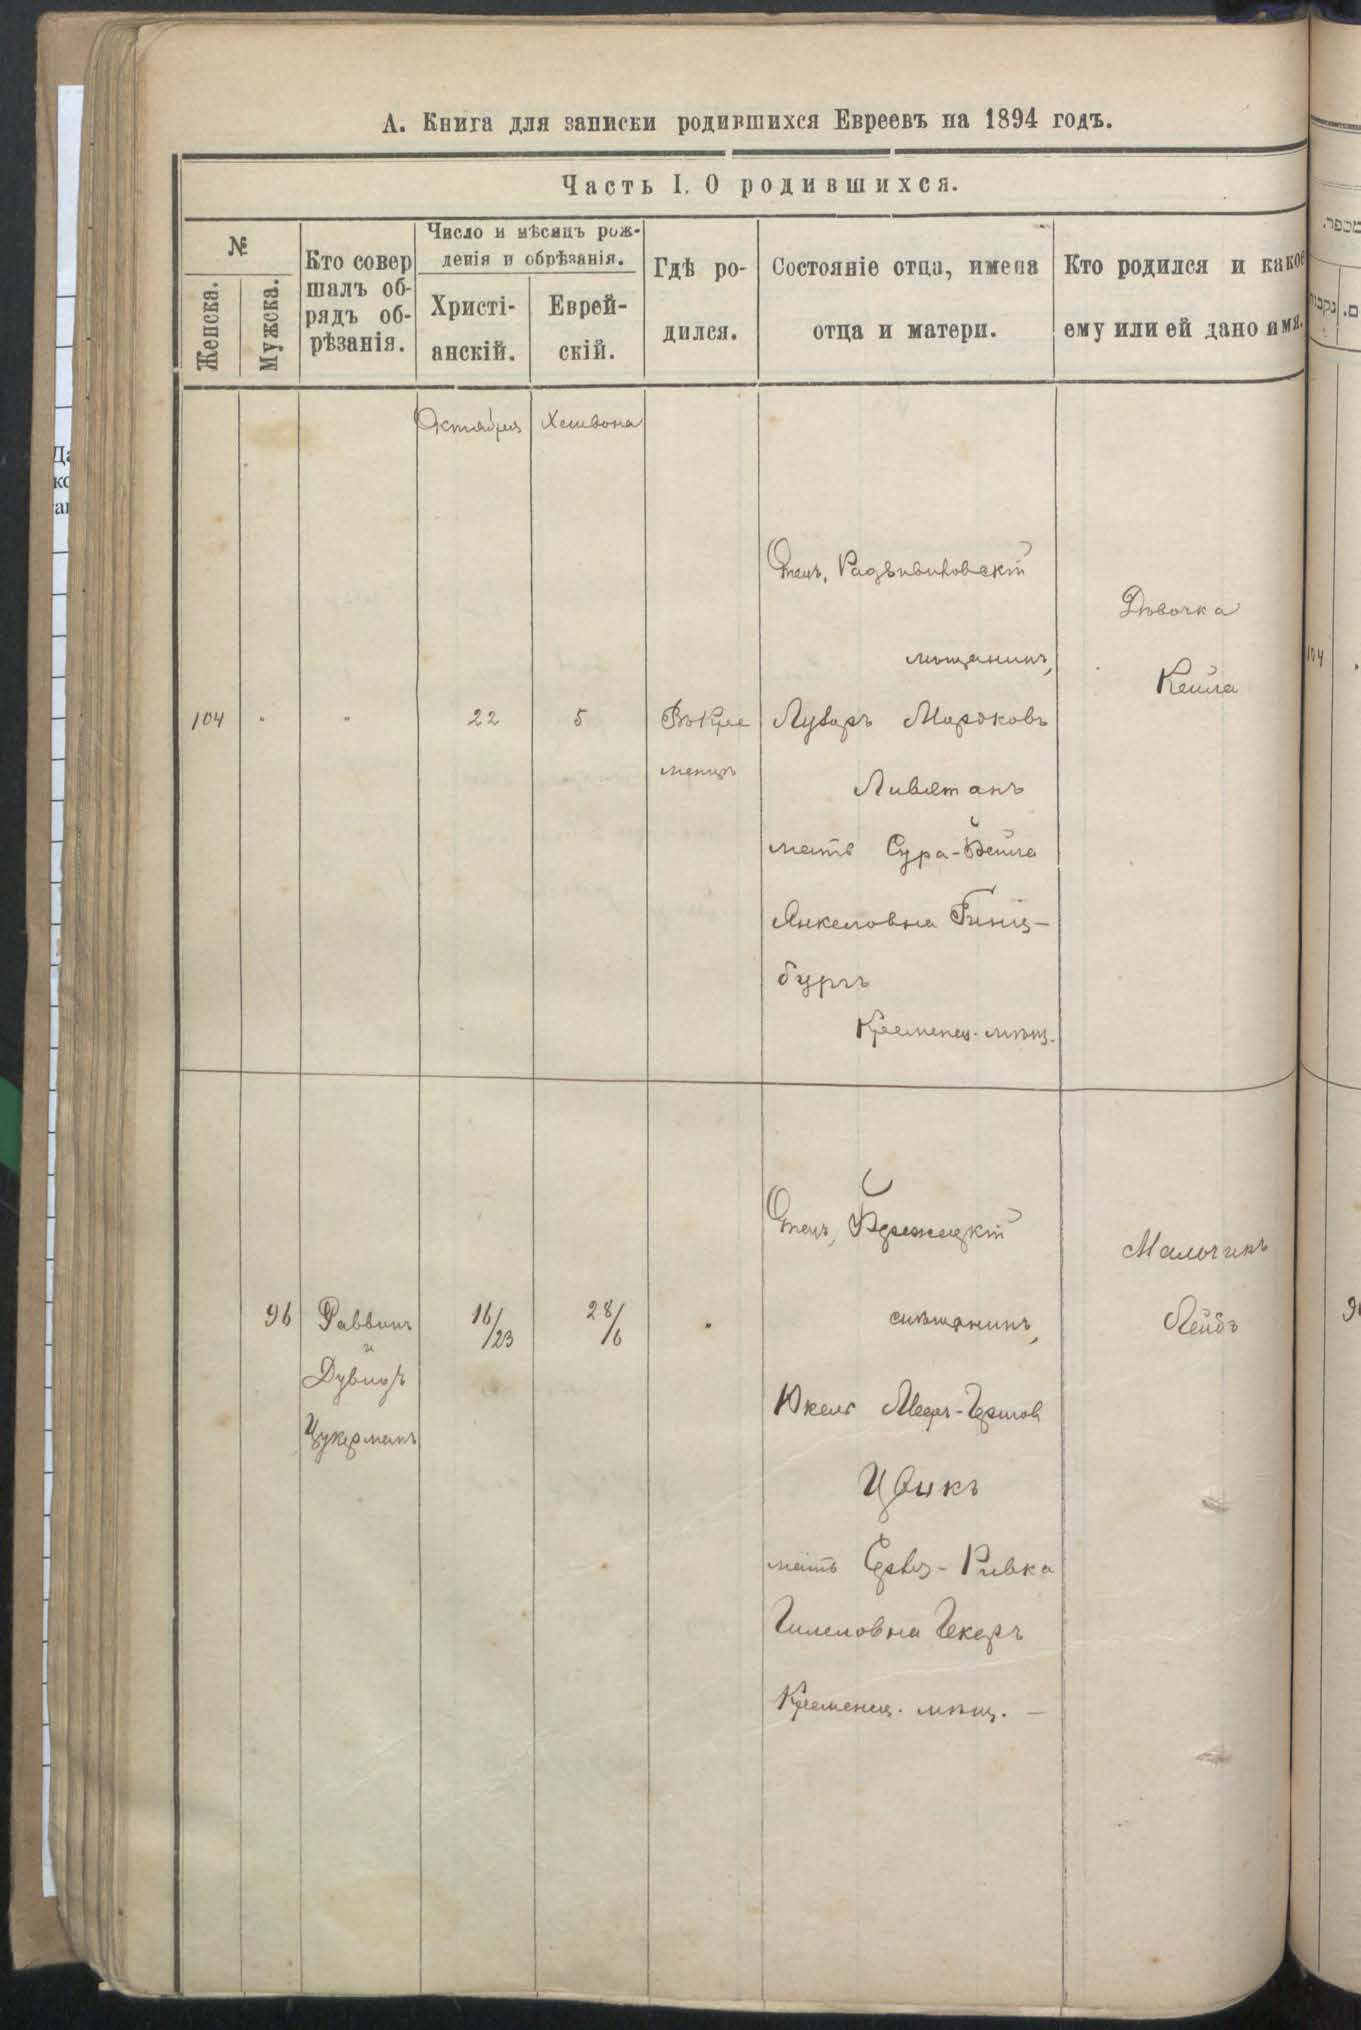 А. Книга для записки родившихся Евреевъ на 1894 годъ.
Часть I. О родившихся.
№
Женска.
Мужска.
Кто совер
шалъ об-
рядъ об-
рѣзанія.
Число и мѣсяцъ рож-
денія и обрѣзанія.
Христі-
анскій.
Еврей-
скій.
Гдѣ ро-
дился.
Состояніе отца, имена
отца и матери.
Кто родился и какое
ему или ей дано имя.
Октября
Хешвона
104
"
"
22
5
Въ Кре
менцѣ
Отецъ, Радзивиловскій
мѣщанинъ,
Лузаръ Мордковъ
Ливятанъ
мать Сура-Бейла
Янкеловна Гинц-
бургъ
Кременец. мѣщ.
Дѣвочка
Кейла
96
Раввинъ
и
Дувидъ
Цукерманъ
16/23
28/6
"
Отецъ,
мѣщанинъ,
Юкель Меер-Гершов
Цвикъ
мать Ривка
Гилеловна Гекеръ
Кременец. мѣщ. —
Мальчикъ
Лейбъ
104